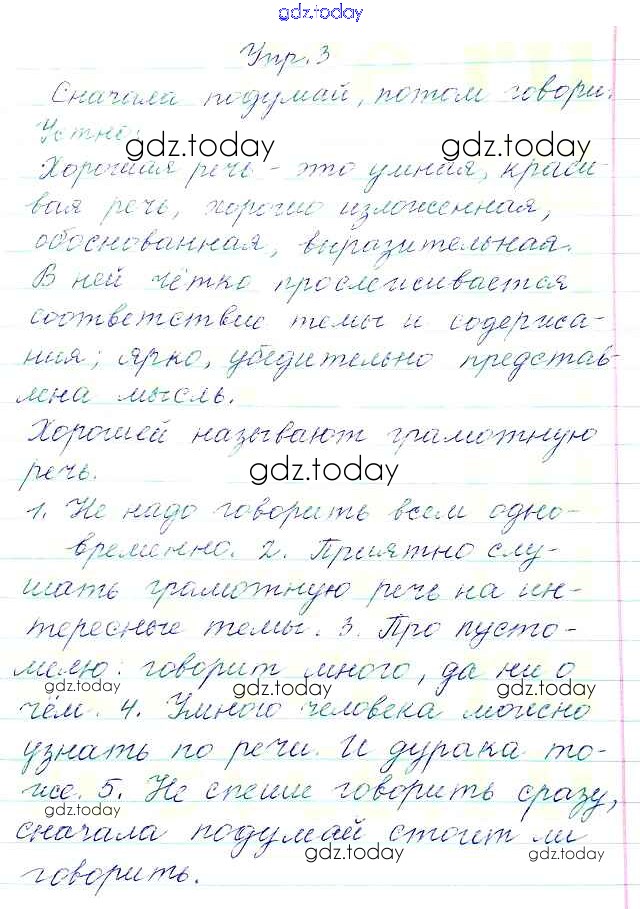 gdz.today
Упр. 3
Сначала подумай, потом говори.
Устно:
gdz.today gdz.today
Хорошая речь - это умная, краси-
вая речь, хорошо изложенная,
обоснованная, выразительная.
В ней чётко прослеживается
соответствие темы и содержа-
ния; ярко, убедительно представ-
лена мысль.
Хорошей называют грамотную
речь.
gdz.today
1. Не надо говорить всем одно-
временно. 2. Приятно слу-
шать грамотную речь на ин-
тересные темы. 3. Про пусто-
мелю: говорит много, да ни о
gdz.today gdz.today gdz.today
чём. 4. Умного человека можно
узнать по речи. И дурака то-
же. 5. Не спеши говорить сразу,
gdz.today
сначала подумай стоит ли
gdz.today gdz.today
говорить.